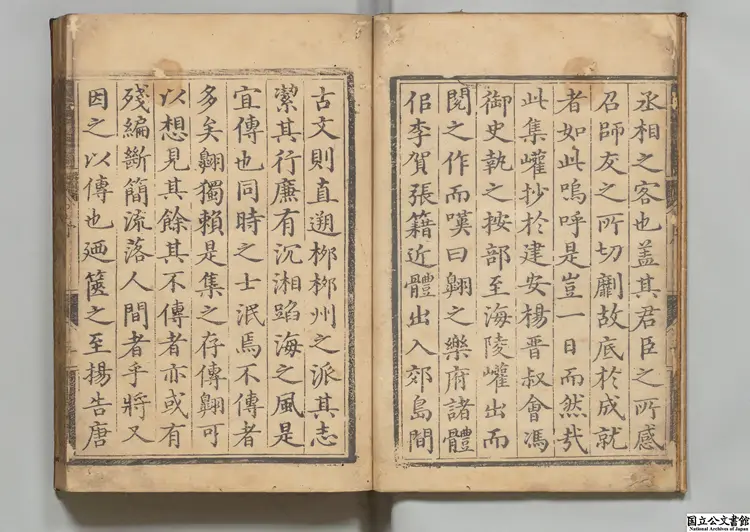 丞相之客也盖其君臣之所感
召師友之所切劘故底於成就
者如此嗚呼是豈一日而然㢤
此集巏抄於建安楊晋叔會馮
御史執之按部至海陵巏出而
閱之作而嘆曰翺之樂府諸體
佀李賀張籍近體出入郊島間
古文則直遡桞桞州之派其志
潔其行廉有沉湘蹈海之風是
宜傳也同時之士泯焉不傳者
多矣翺獨賴是集之存傳翺可
以想見其餘其不傳者亦或有
殘編斷簡流落人間者乎將又
因之以傳也廼篋之至揚告唐
国立公文書館
National Archives of Japan